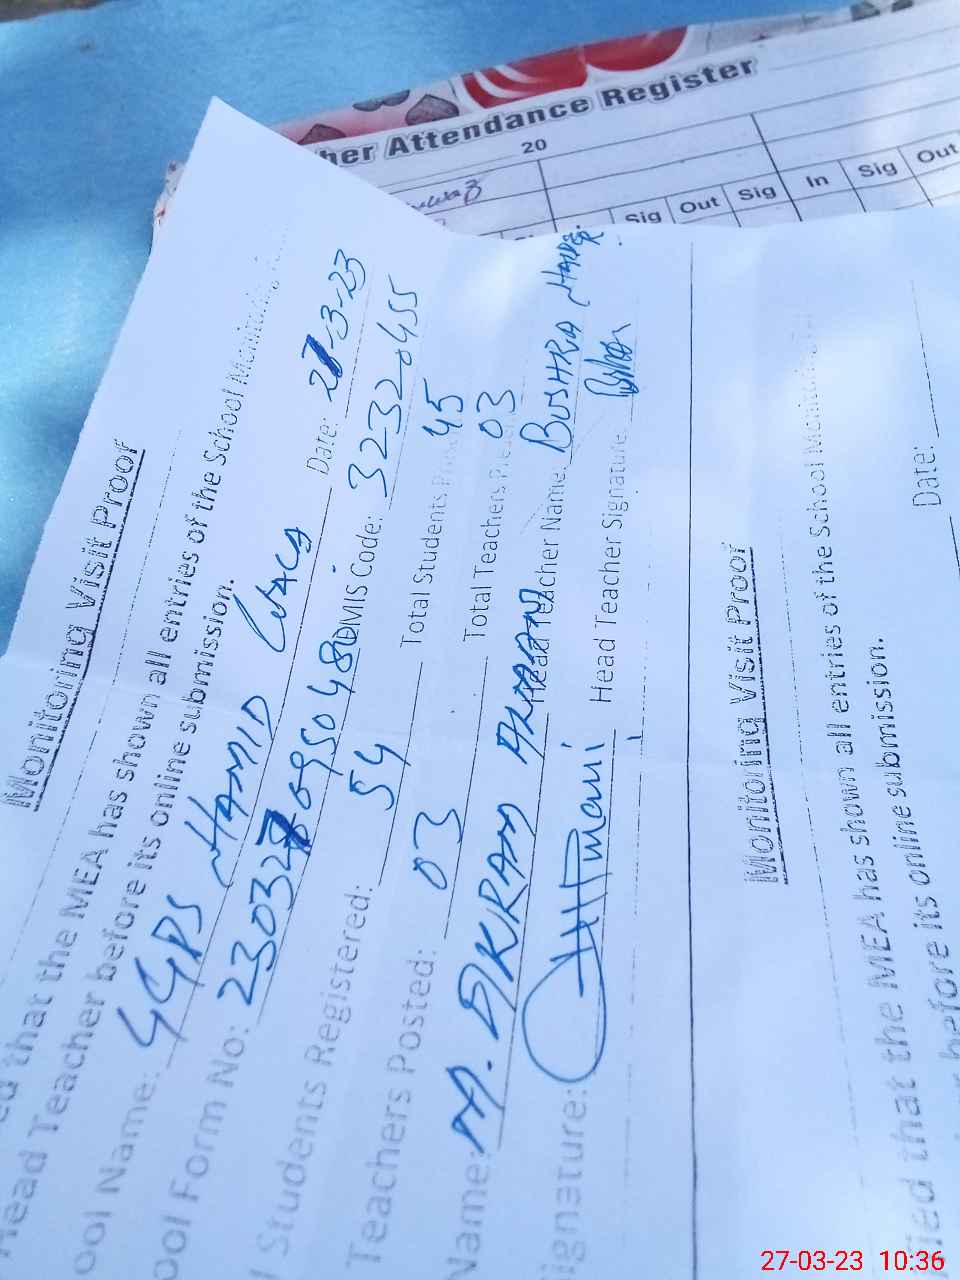 her Attendance Register
20
Sig Out Sig In Sig Out
Monitoring Visit Proof
ed that the MEA has shown all entries of the School Monitoring
Head Teacher before its online submission.
ool Name: GGPS HAMID Date: 27-3-23
ool Form No: EMIS Code: 32320455
l Students Registered: 54 Total Students Pres 45
Teachers Posted: 03 Total Teachers Present 03
Name: M. IKRAM ARMANI Head Teacher Name: BUSHRA
ignature: Armani Head Teacher Signature:
Monitoring Visit Proof
fied that the MEA has shown all entries of the School Monitoring
r before its online submission.
Date:
27-03-23 10:36